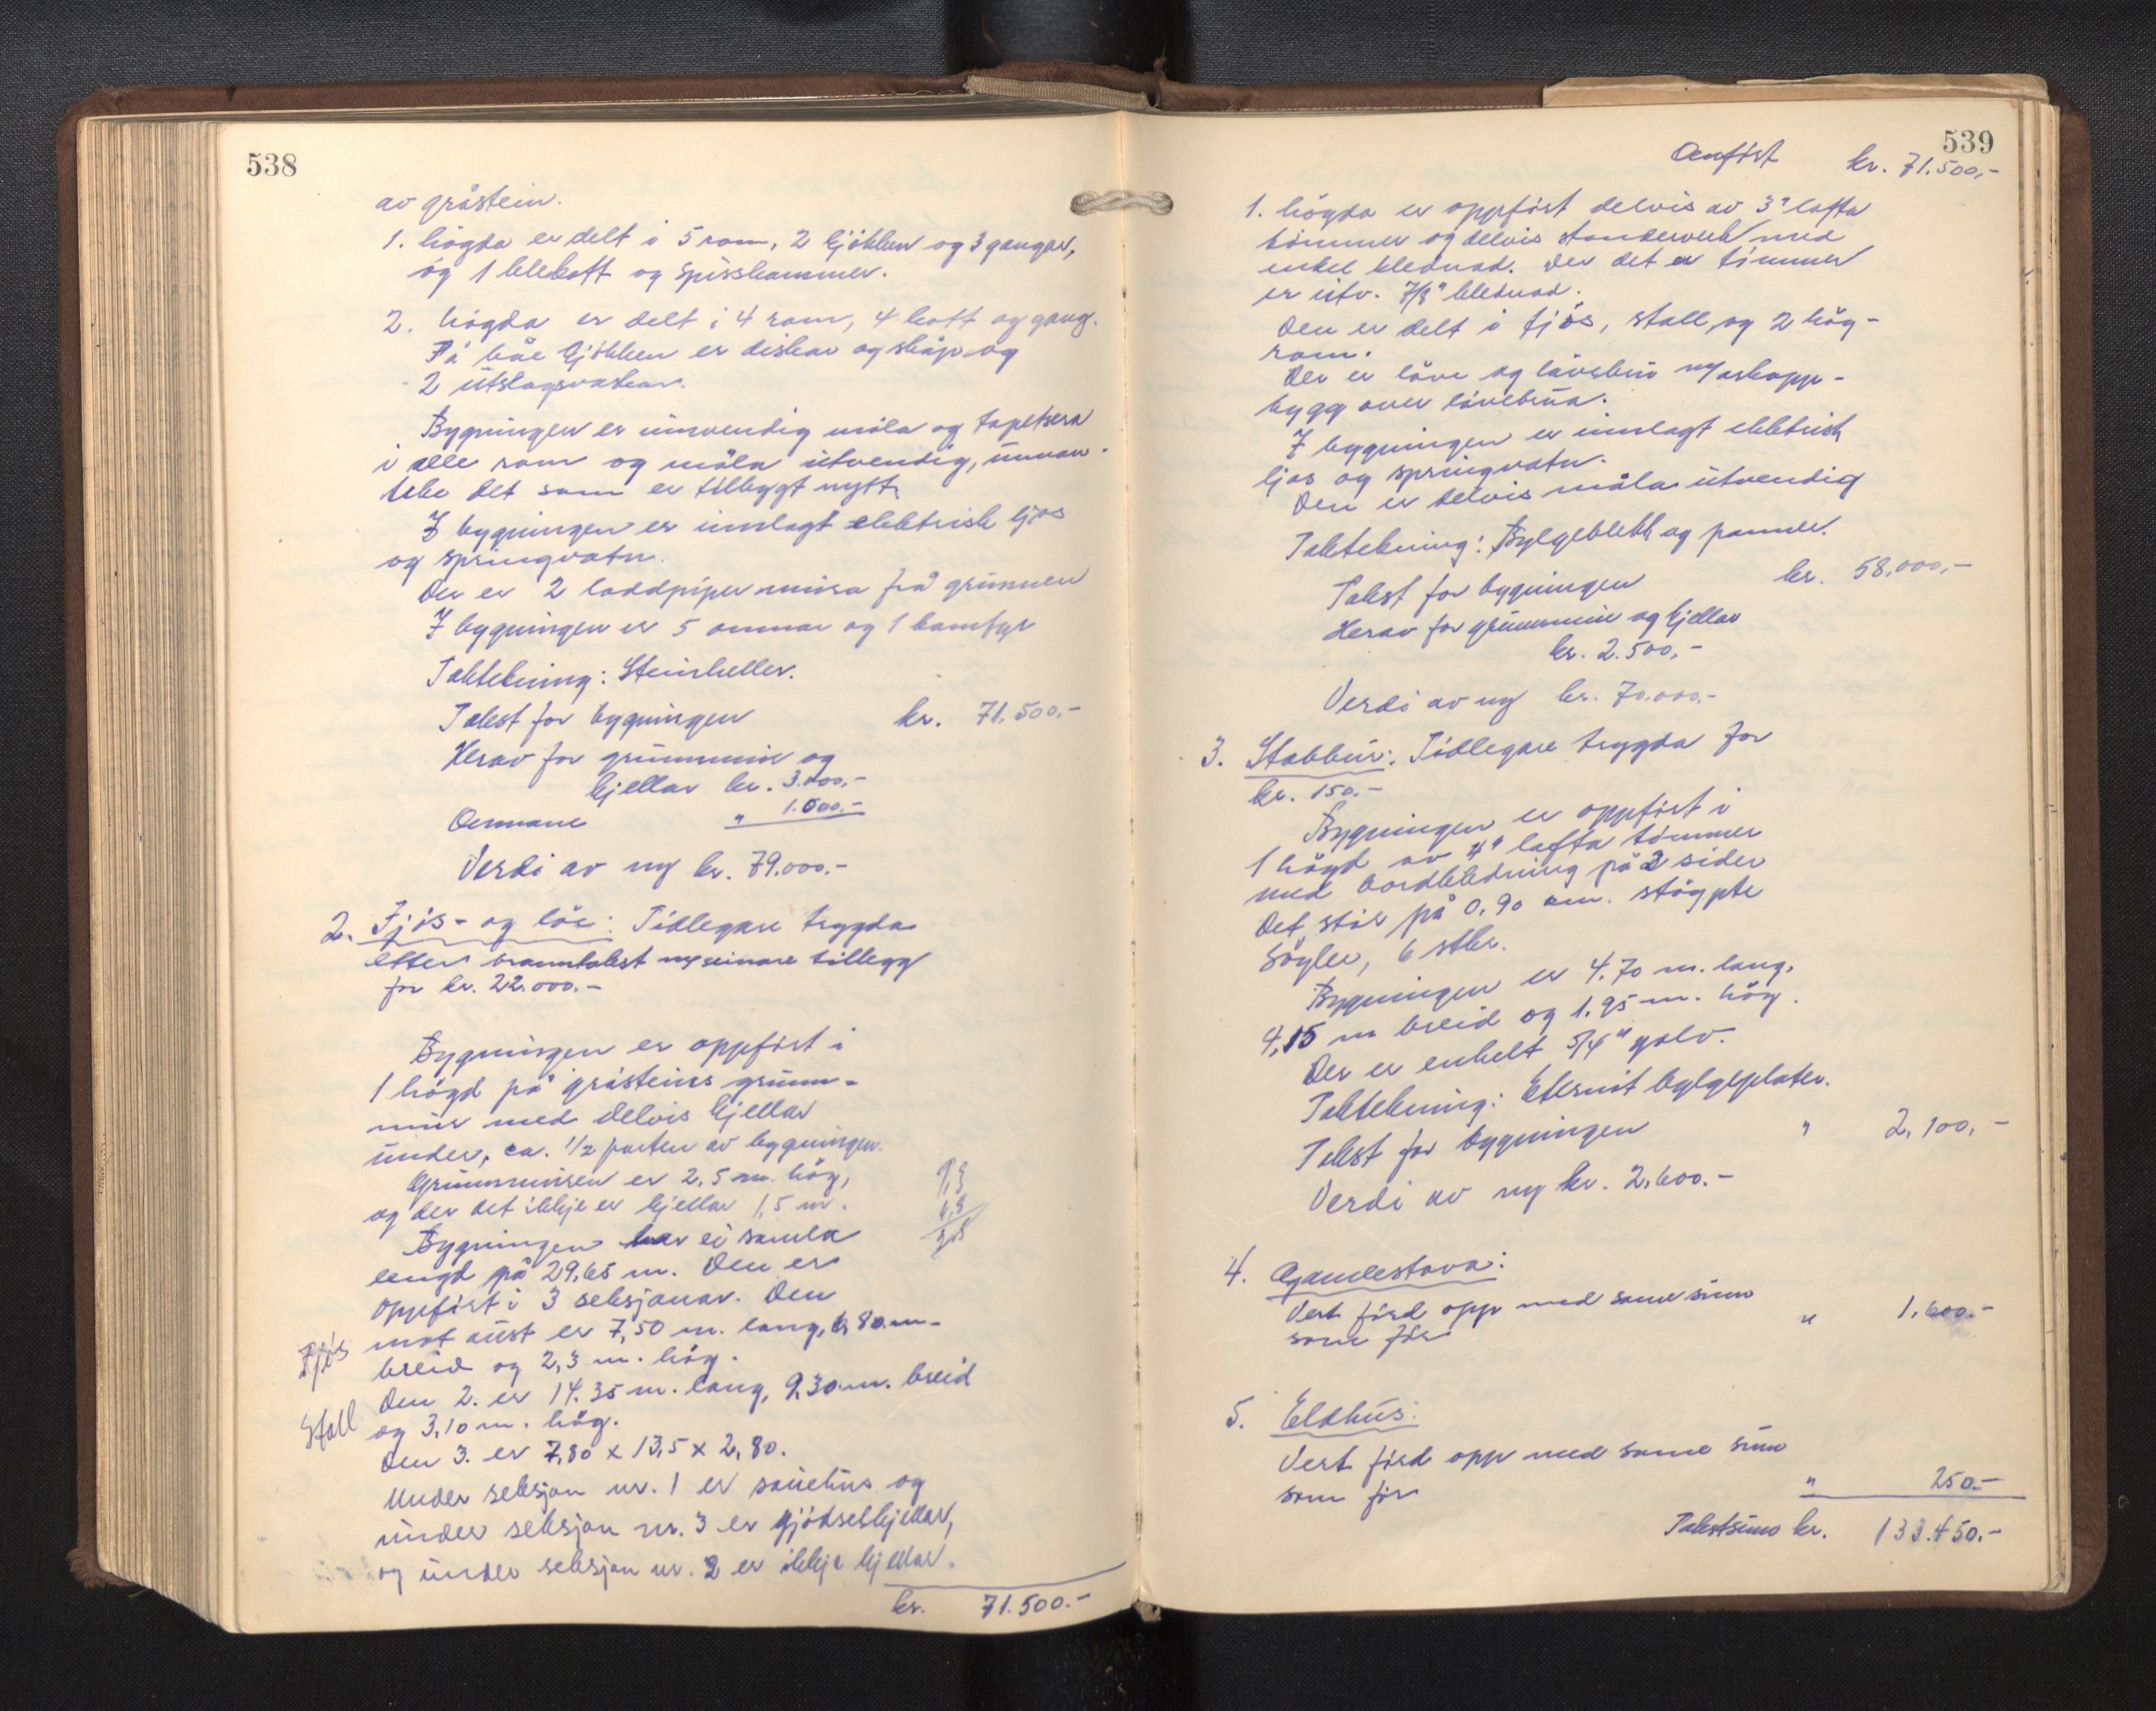 538
av gråstein.
1. högda er delt i 5 rom, 2 kjökken og 3 gangar,
og 1 klekott og spisskammer.
2. högda er delt i 4 rom, 4 kott og gang.
På båe kjökken er diskar og skåp og
2 utslagsvaskar.
Bygningen er innvendig måla og tapetsera
i alle rom og måla utvendig, unnan-
teke det som er tilbygt nytt.
I bygningen er innlagt elektrisk ljos
og springvatn.
Der er 2 loddpiper mura frå grunnen
I bygningen er 5 omnar og 1 kamfyr
Taktekning: Steinheller.
Takst for bygningen kr. 71.500,-
Herav for grunnmur og
kjellar kr. 3.000,-
Omnane " 1.000.-
Verdi av ny kr. 79.000.-
2. Fjös- og löe: Tidlegare trygda
etter branntakst m/seinare tillegg
for kr. 22.000.-
Bygningen er oppfört i
1 högd på gråsteins grunn-
mur med delvis kjellar
under, ca. 1/2 parten av bygningen.
Grunnmuren er 2,5 m. hög,
og der det ikkje er kjellar 1,5 m.
Bygningen har ei samla
lengd på 29,65 m. Den er
oppfört i 3 seksjonar. Den
Fjös mot aust er 7,50 m. lang, 6,80 m.
breid og 2,3 m. hög.
Den 2. er 14.35 m. lang, 9.30 m. breid
Stall og 3,10 m. hög.
Den 3. er 7,80 x 13,5 x 2,80.
Under seksjon nr. 1 er sauehus og
under seksjon nr. 3 er gjödselkjellar,
og under seksjon nr. 2 er ikkje kjellar.
kr. 71.500.-
539
Overfört kr. 71.500,-
1. högda er oppfört delvis av 3" lafta
tömmer og delvis standerverk med
enkel klednad. Der det er tömmer
er utv. 7/8" klednad.
Den er delt i fjös, stall, og 2 hög-
rom.
Der er löve og lövebru m/arkopp-
bygg over lövebrua.
I bygningen er innlagt elektrisk
ljos og springvatn.
Den er delvis måla utvendig
Taktekning: Bylgeblekk og panner.
Takst for bygningen kr. 58.000,-
Herav for grunnmur og kjellar
kr. 2.500,-
Verdi av ny kr. 70.000.-
3. Stabbur: Tidlegare trygda for
kr. 150.-
Bygningen er oppfört i
1 högd av 4" lafta tömmer
med bordkledning på 2 sider
Det står på 0,90 m. stöypte
söyler, 6 stkr.
Bygningen er 4.70 m. lang,
4,15 m breid og 1.95 m. hög.
Der er enkelt 5/4" golv.
Taktekning: Eternit bylgeplater.
Takst for bygningen " 2.100,-
Verdi av ny kr. 2.600.-
4. Gamlestova:
Vert förd opp med same sum
som för " 1.600.-
5. Eldhus:
Vert förd opp med same sum
som för " 250.-
Takstsum kr. 133.450.-